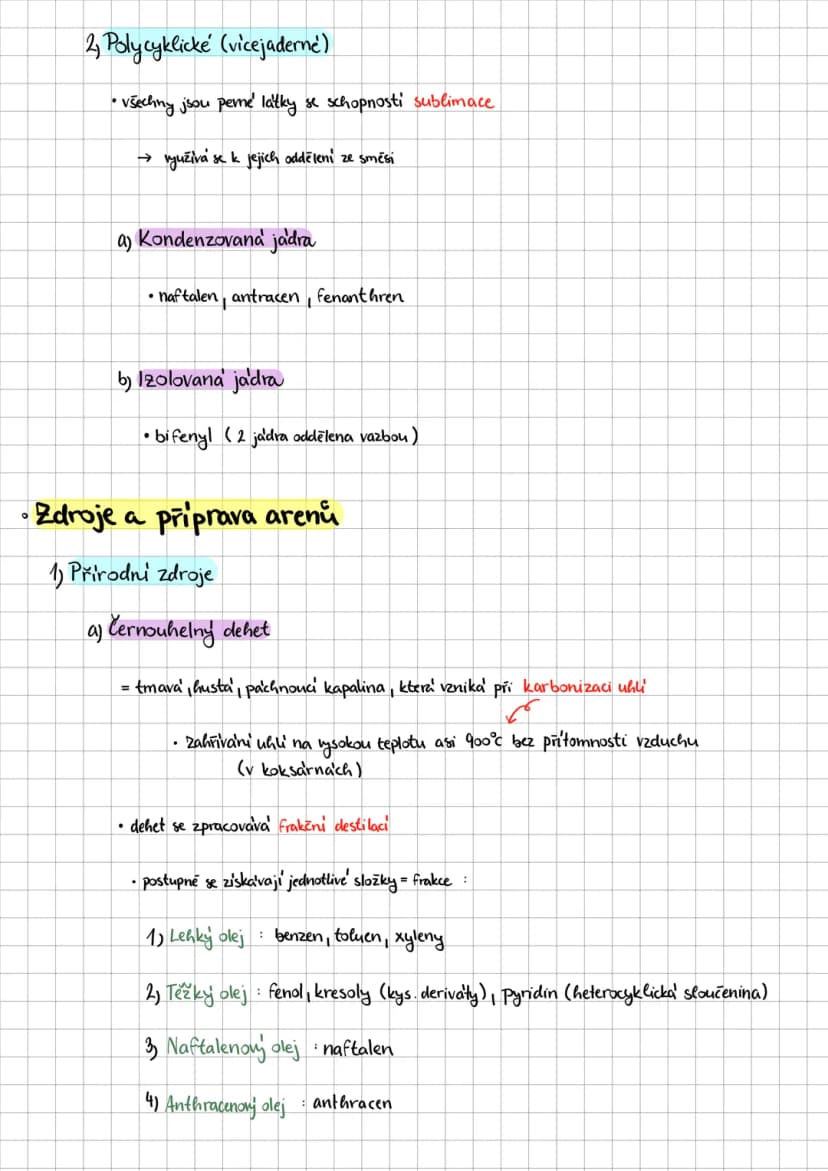 2) Polycyklické (vícejaderné)
• všechny jsou pevné látky se schopností sublimace
→ využívá se k jejich oddělení ze směsi
a) Kondenzovaná jádra
• naftalen, antracen, fenanthren
b) Izolovaná jádra
• bifenyl (2 jádra oddělena vazbou)
• Zdroje a příprava arenů
1) Přírodní zdroje
a) Černouhelný dehet
= tmavá, hustá, páchnoucí kapalina, která vzniká při karbonizaci uhlí
• zahřívání uhlí na vysokou teplotu asi 900°C bez přítomnosti vzduchu
(v koksárnách)
• dehet se zpracovává frakční destilací
• postupně se získávají jednotlivé složky = frakce :
1) Lehký olej : benzen, toluen, xyleny
2) Těžký olej : fenol, kresoly (kys. deriváty), pyridin (heterocyklická sloučenina)
3) Naftalenový olej : naftalen
4) Anthracenový olej : anthracen